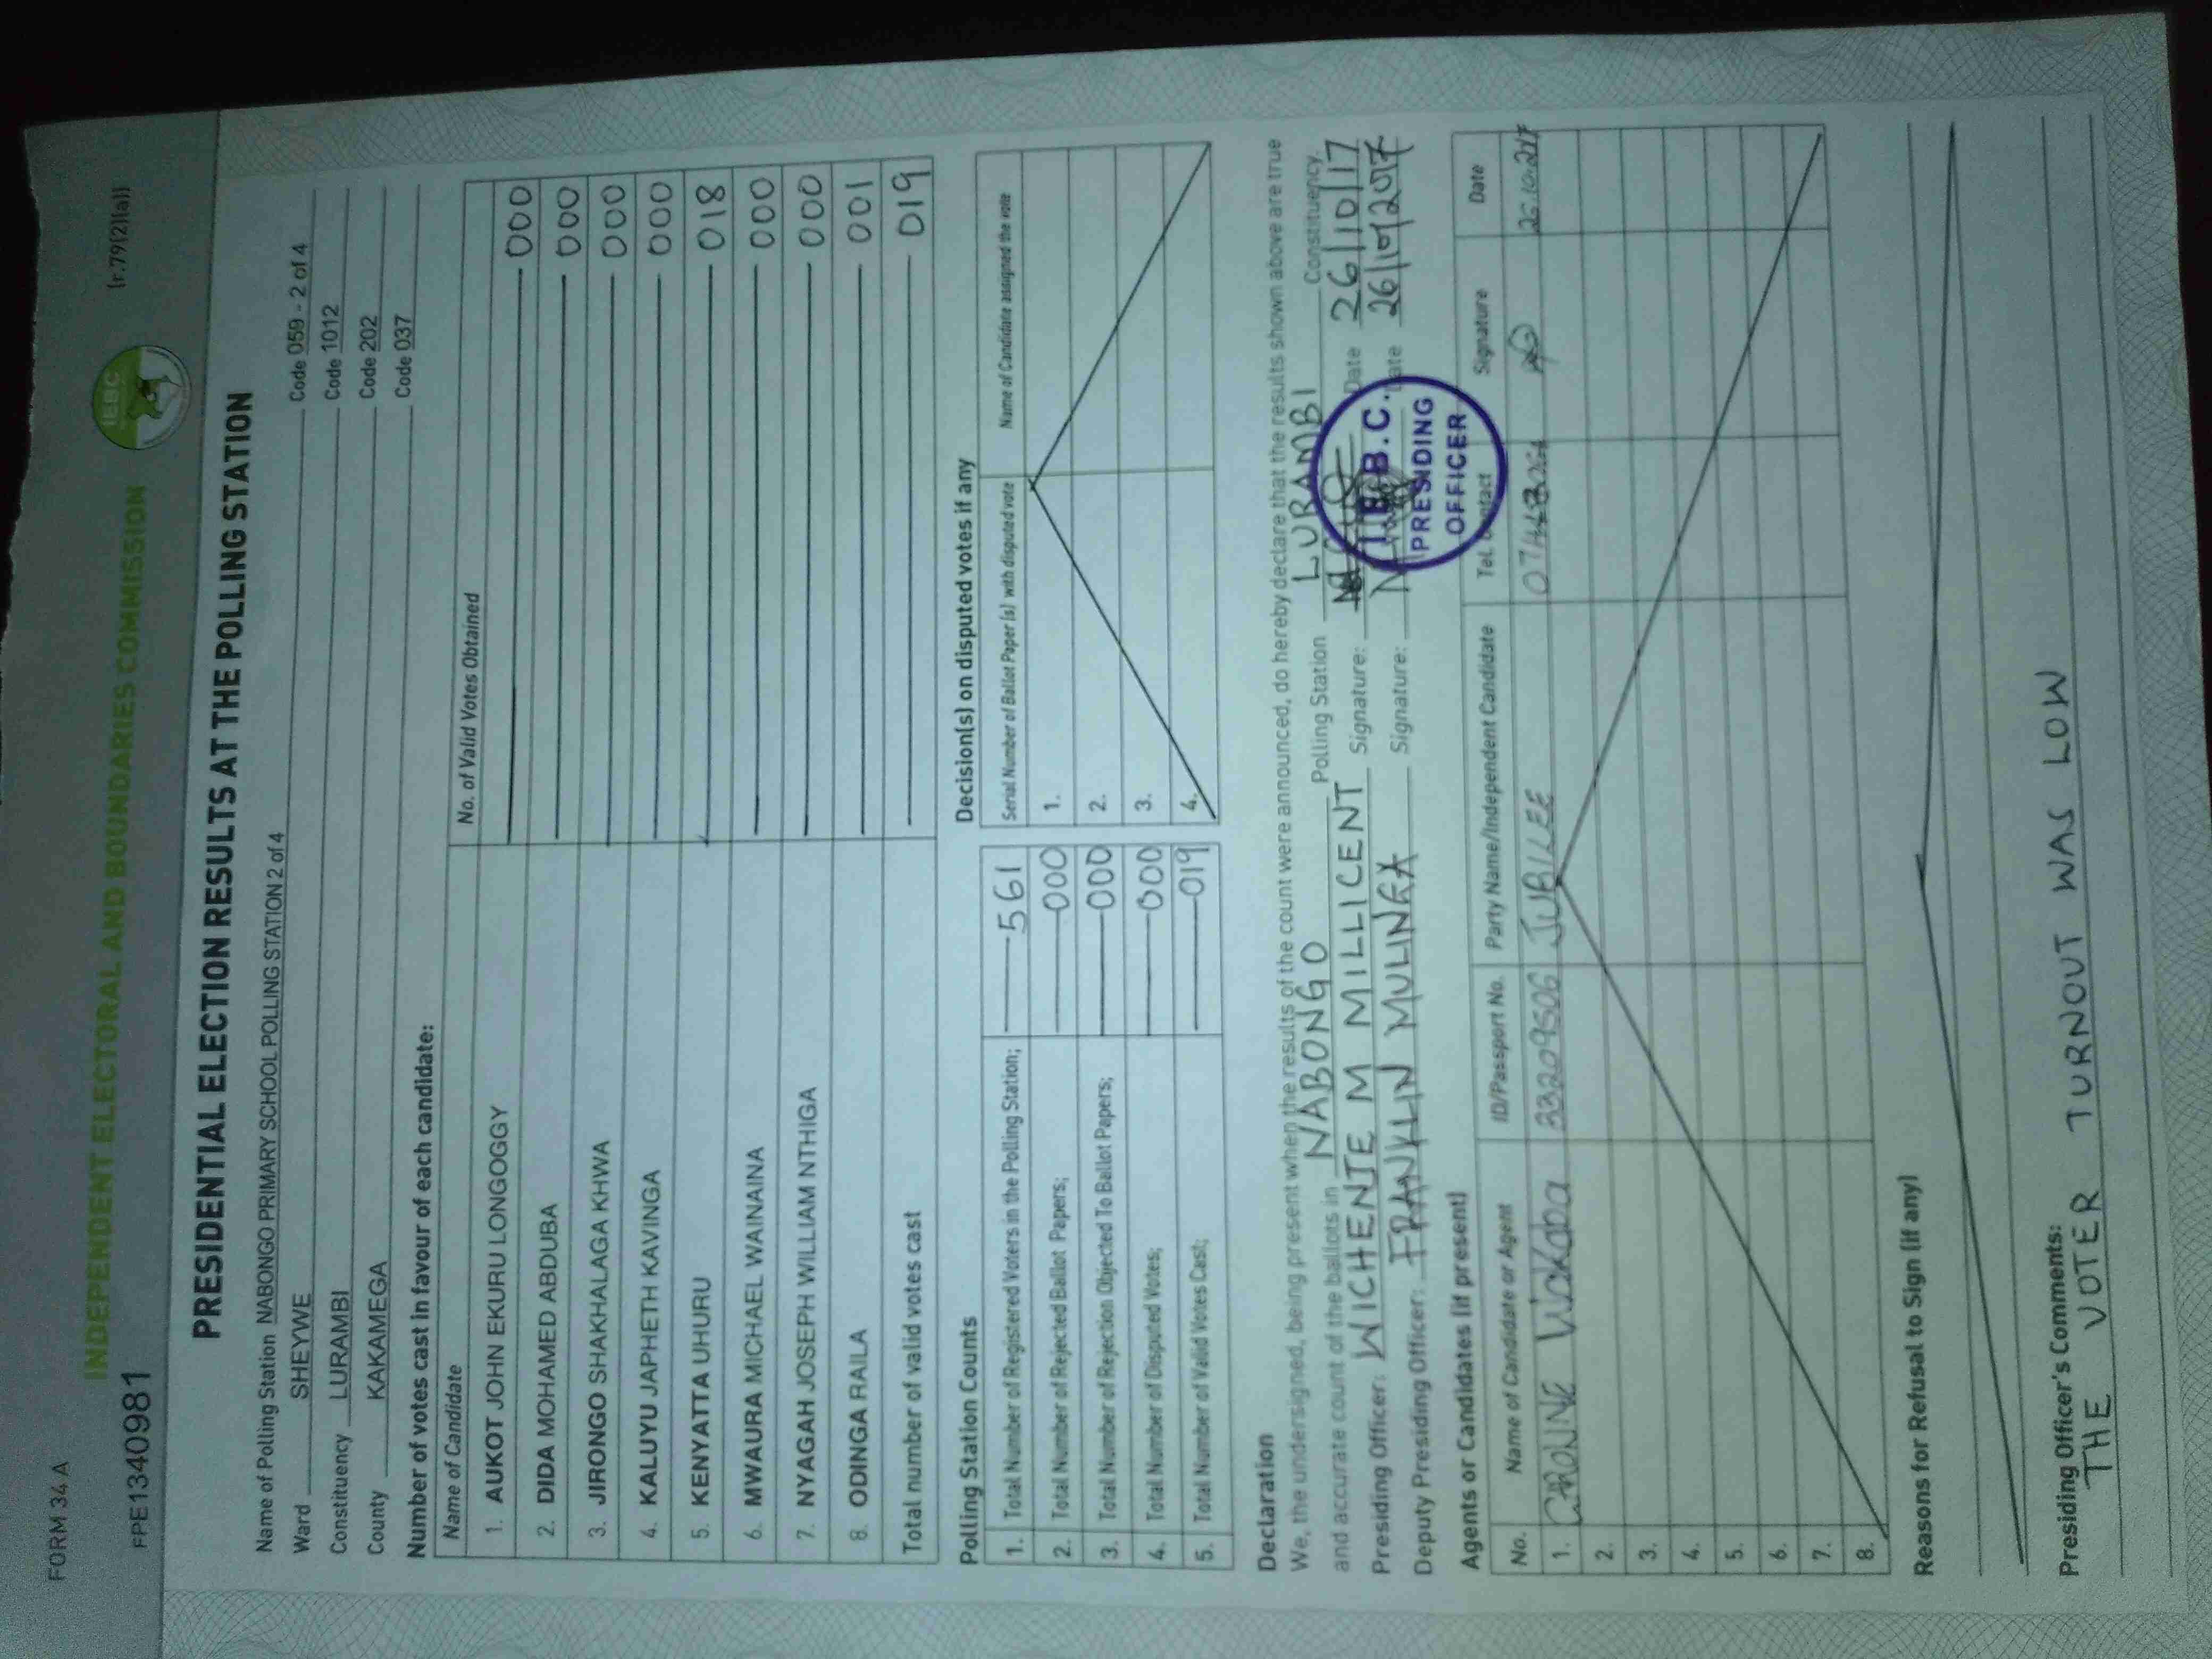 FORM 34 A
[r.79(2)(a)]
IEBC
INDEPENDENT ELECTORAL AND BOUNDARIES COMMISSION
FPE1340981
PRESIDENTIAL ELECTION RESULTS AT THE POLLING STATION
Name of Polling Station NABONGO PRIMARY SCHOOL POLLING STATION 2 of 4 Code 059 - 2 of 4
Ward SHEYWE Code 1012
Constituency LURAMBI Code 202
County KAKAMEGA Code 037
Number of votes cast in favour of each candidate:
Name of Candidate No. of Valid Votes Obtained
1. AUKOT JOHN EKURU LONGOGGY 000
2. DIDA MOHAMED ABDUBA 000
3. JIRONGO SHAKHALAGA KHWA 000
4. KALUYU JAPHETH KAVINGA 000
5. KENYATTA UHURU 018
6. MWAURA MICHAEL WAINAINA 000
7. NYAGAH JOSEPH WILLIAM NTHIGA 000
8. ODINGA RAILA 001
Total number of valid votes cast 019
Polling Station Counts
1. Total Number of Registered Voters in the Polling Station; 561
2. Total Number of Rejected Ballot Papers; 000
3. Total Number of Rejection Objected To Ballot Papers; 000
4. Total Number of Disputed Votes; 000
5. Total Number of Valid Votes Cast; 019
Decision(s) on disputed votes if any
Serial Number of Ballot Paper (s) with disputed vote Name of Candidate assigned the vote
1.
2.
3.
4.
Declaration
We, the undersigned, being present when the results of the count were announced, do hereby declare that the results shown above are true
and accurate count of the ballots in NABONGO Polling Station LURAMBI Constituency.
Presiding Officer: WICHENJE M MILLICENT Signature: Date 26/10/17
Deputy Presiding Officer: FRANKLIN MULINGA Signature: Date 26/10/2017
I.E.B.C.
PRESIDING
OFFICER
Agents or Candidates (if present)
No. Name of Candidate or Agent ID/Passport No. Party Name/Independent Candidate Tel. Contact Signature Date
1. CAROLINE 23209506 JUBILEE 26.10.2017
2.
3.
4.
5.
6.
7.
8.
Reasons for Refusal to Sign (if any)
Presiding Officer's Comments:
THE VOTER TURNOUT WAS LOW